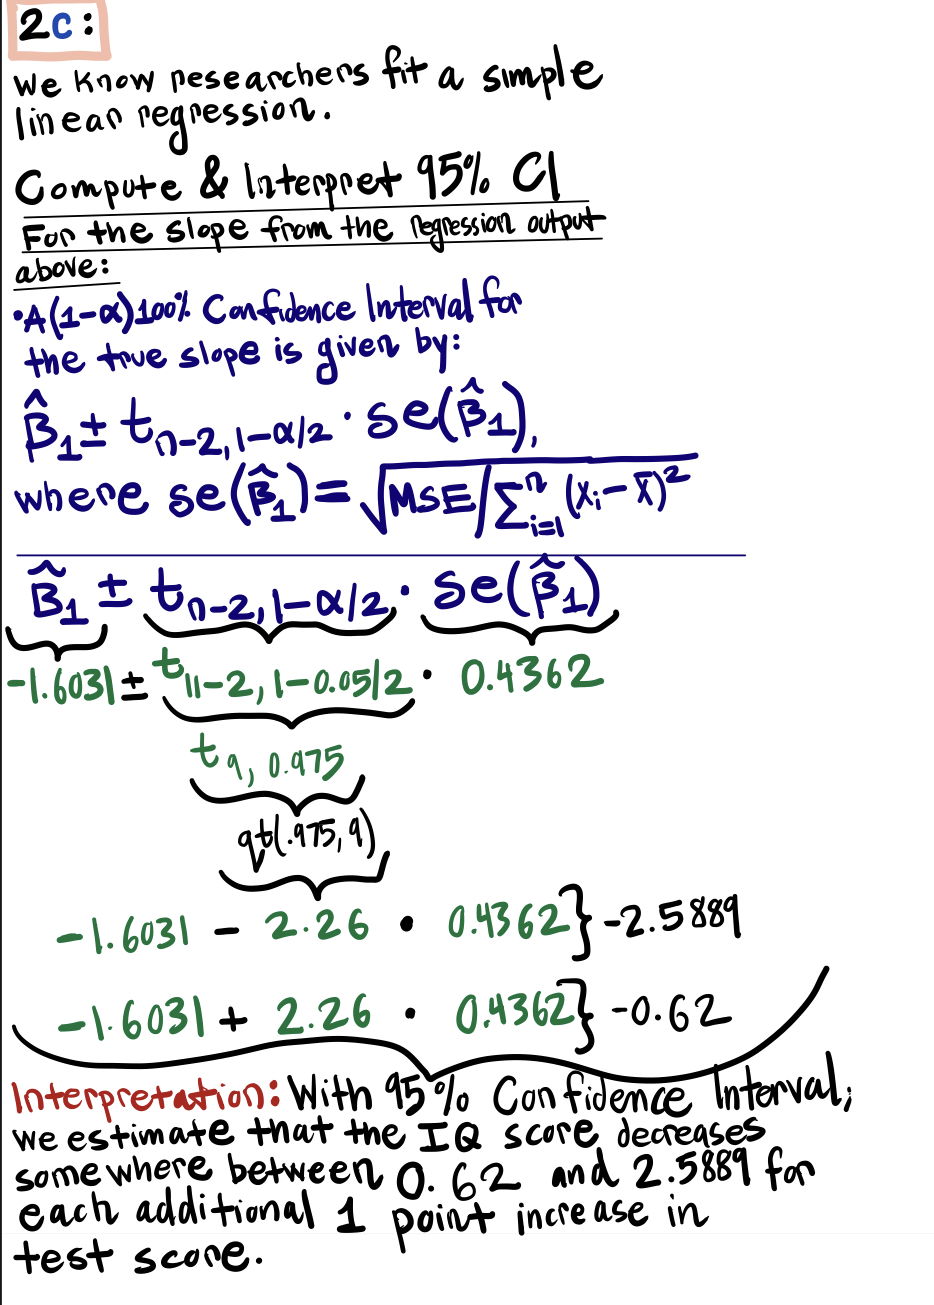 2c:
We know researchers fit a simple
linear regression.
Compute & Interpret 95% CI
For the slope from the regression output
above:
•A(1-α)100% Confidence Interval for
the true slope is given by:
β̂₁ ± t n-2, 1-α/2 · se(β̂₁),
where se(β̂₁) = √MSE/∑ⁿᵢ₌₁(xᵢ-x̄)²
β̂₁ ± t n-2, 1-α/2 · se(β̂₁)
-1.6031 ± t 11-2, 1-0.05/2 · 0.4362
t 9, 0.975
qt(.975, 9)
-1.6031 - 2.26 · 0.4362} -2.5889
-1.6031 + 2.26 · 0.4362} -0.62
Interpretation: With 95% Confidence Interval,
we estimate that the IQ score decreases
somewhere between 0.62 and 2.5889 for
each additional 1 point increase in
test score.